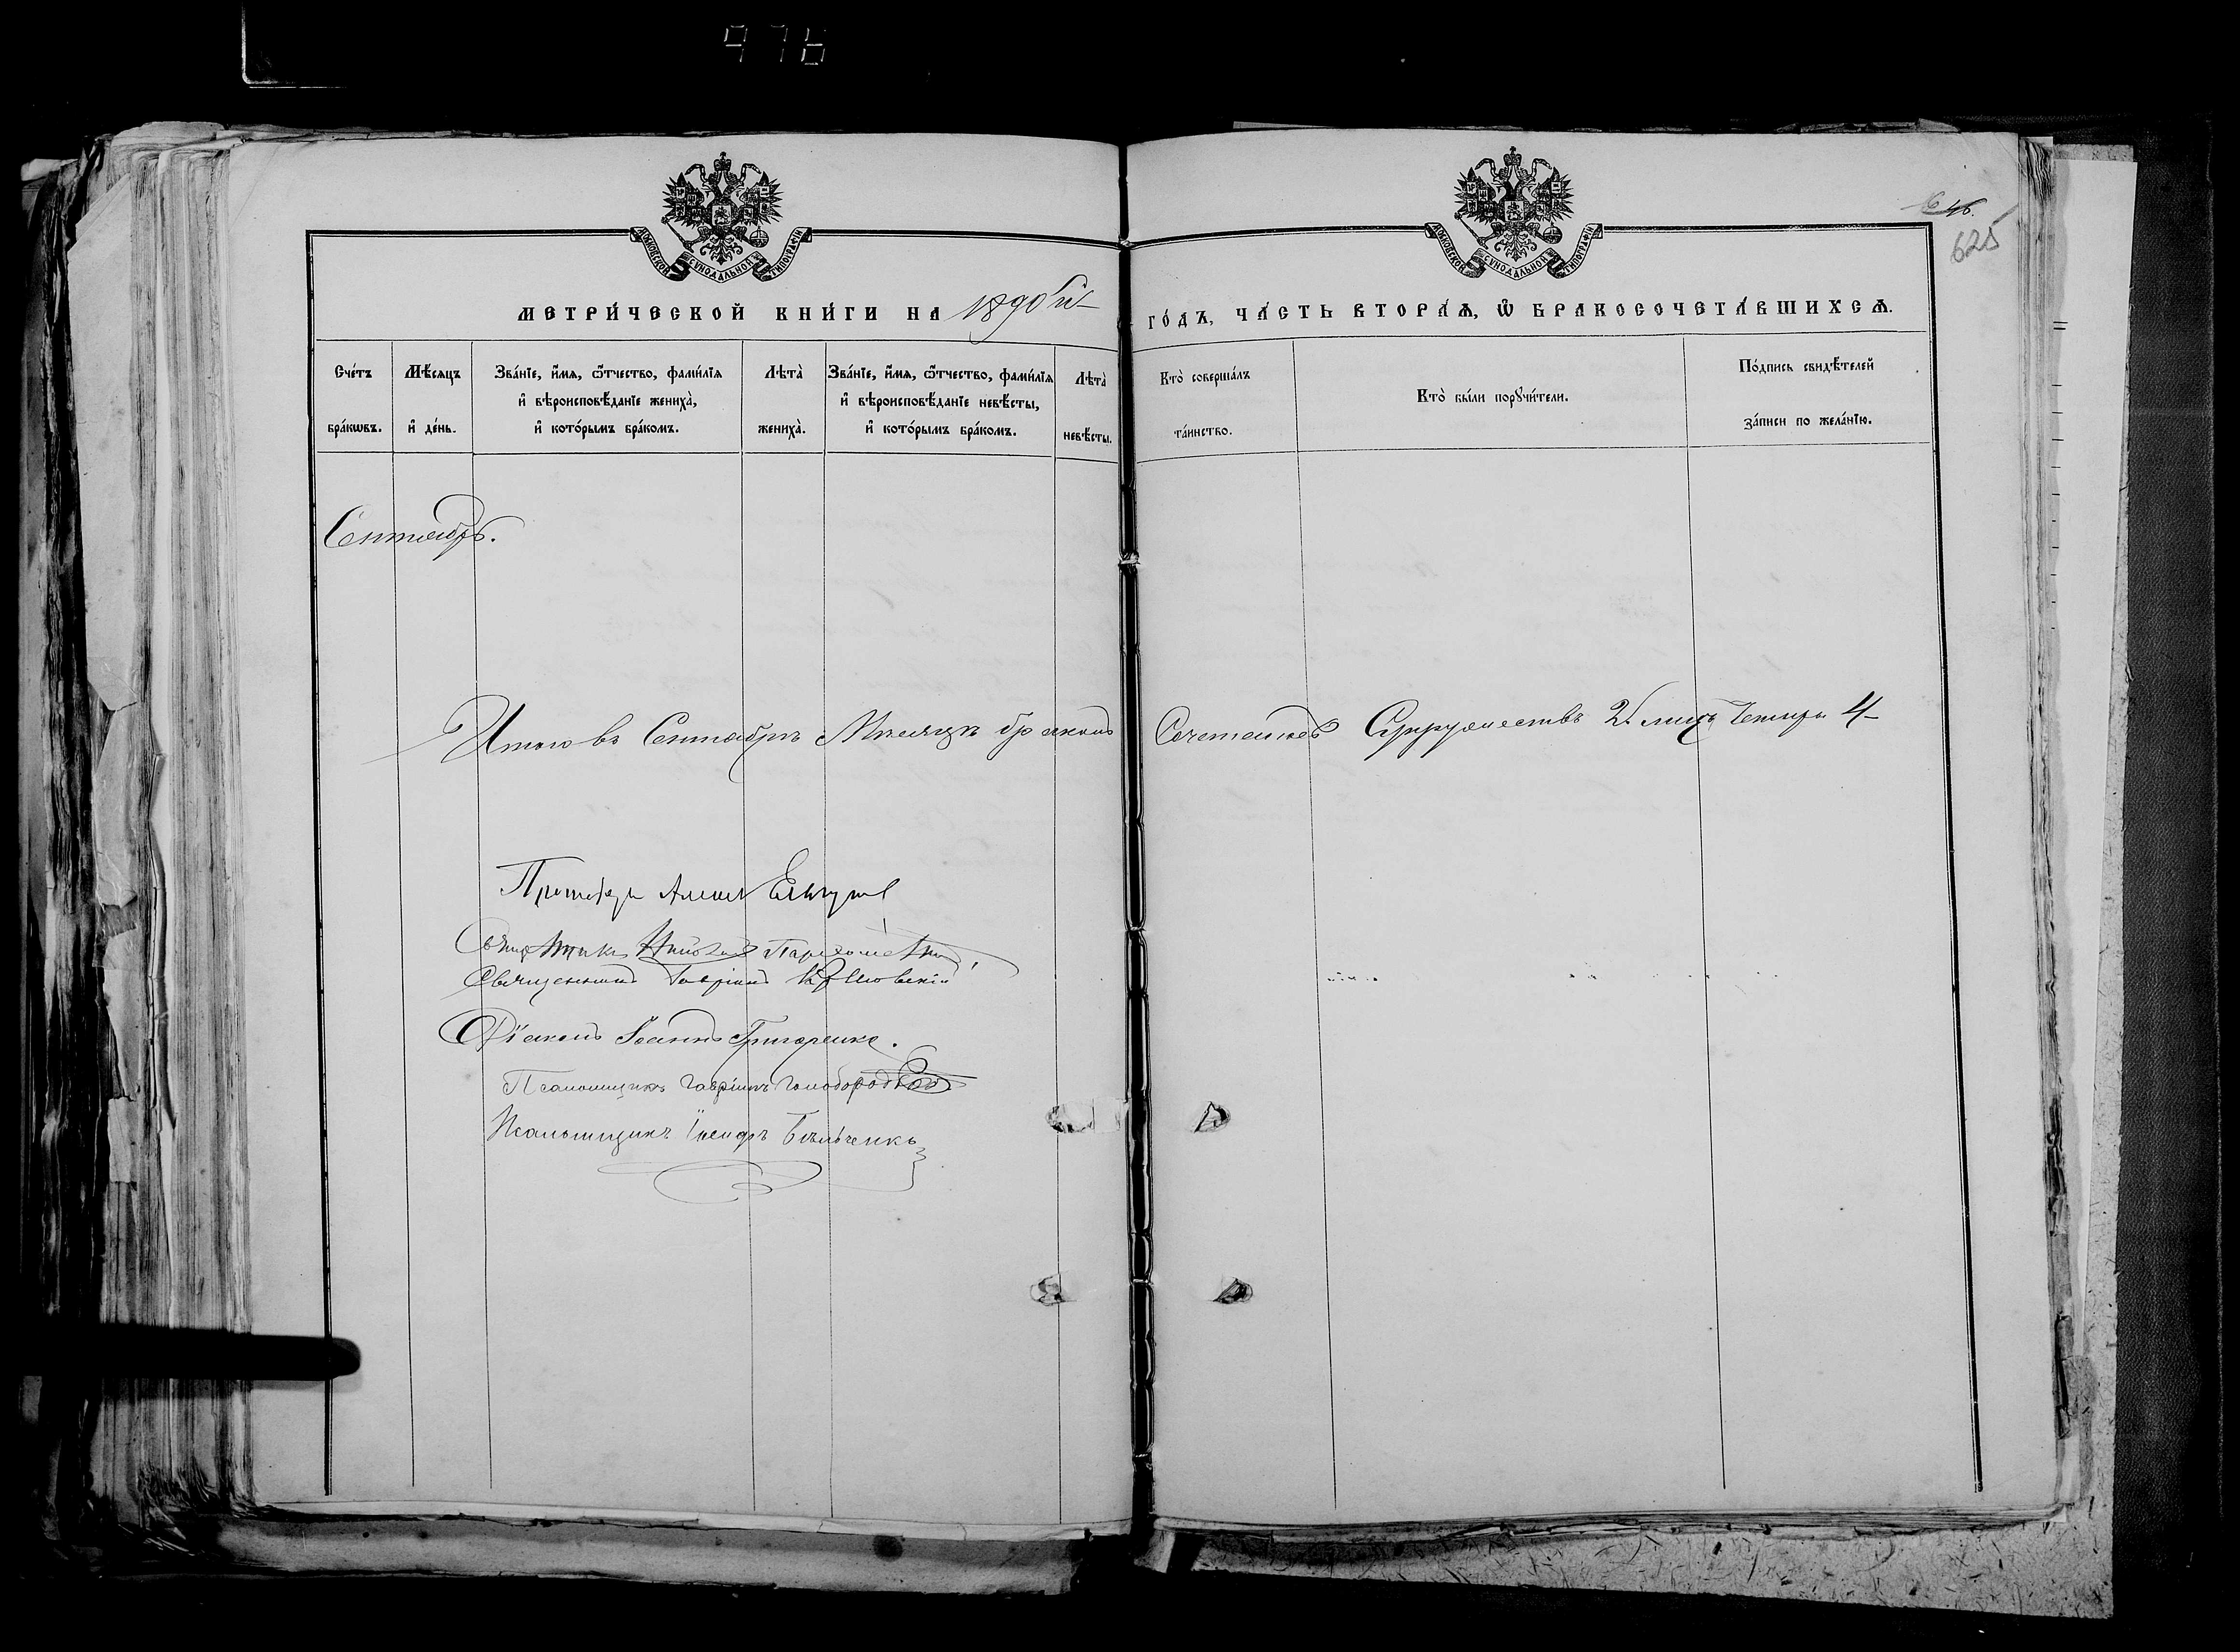 976
МОСКОВСКОЙ СУНОДАЛЬНОЙ ТИПОГРАФІИ
МОСКОВСКОЙ СУНОДАЛЬНОЙ ТИПОГРАФІИ
625
МЕТРИ́ЧЕСКОЙ КНИ́ГИ НА 1890й ГО́ДЪ, ЧА́СТЬ ВТОРА́Ѧ, Ѽ БРАКОСОЧЕТА́ВШИХСѦ.
Сче́тъ бра́кѡвъ.
Мѣ́сяцъ и҆ де́нь.
Зва́нїе, и҆́мѧ, ѻ҆́тчество, фами́лїѧ и҆ вѣроисповѣ́данїе жениха̀, и҆ кото́рымъ бра́комъ.
Лѣта̀ жениха̀.
Зва́нїе, и҆́мѧ, ѻ҆́тчество, фами́лїѧ и҆ вѣроисповѣ́данїе невѣ́сты, и҆ кото́рымъ бра́комъ.
Лѣта̀ невѣ́сты.
Кто̀ соверша́лъ та́инство.
Кто̀ бы́ли порꙋчи́тели.
По́дпись свидѣ́телей за́писи по жела́нїю.
Сентябрь.
Итого въ Сентябрѣ Мѣсяцѣ бракомъ Сочетанно Супружествъ 2. лицъ Четыре 4
Алексѣй
Священникъ Николай
Священникъ Гавріилъ
Діаконъ Іоаннъ Григоренко.
Псаломщикъ Гавріилъ Голобородько
Псаломщикъ Іосифъ Бѣльченко